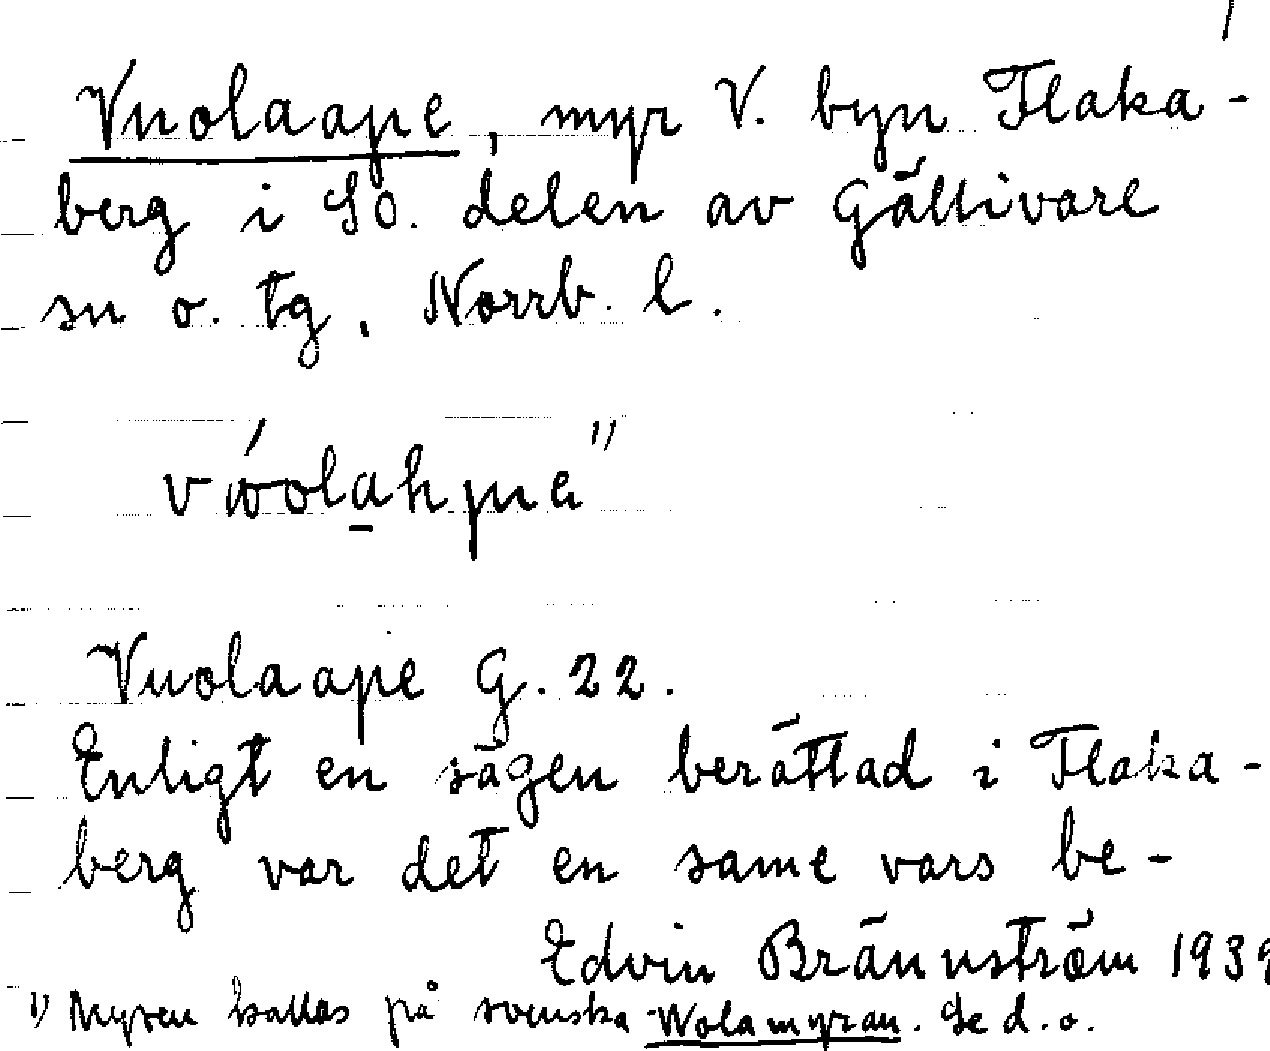 1
Vuolaape, myr V. byn Flaka-
berg i SO. delen av Gällivare
sn o. tg, Norrb. l.
Vuolaape G. 22.
Enligt en sägen berättad i Flaka-
berg var det en same vars be-
Edvin Brännström 1939
1) Myren kallas på svenska Wolamyran. Se d. o.